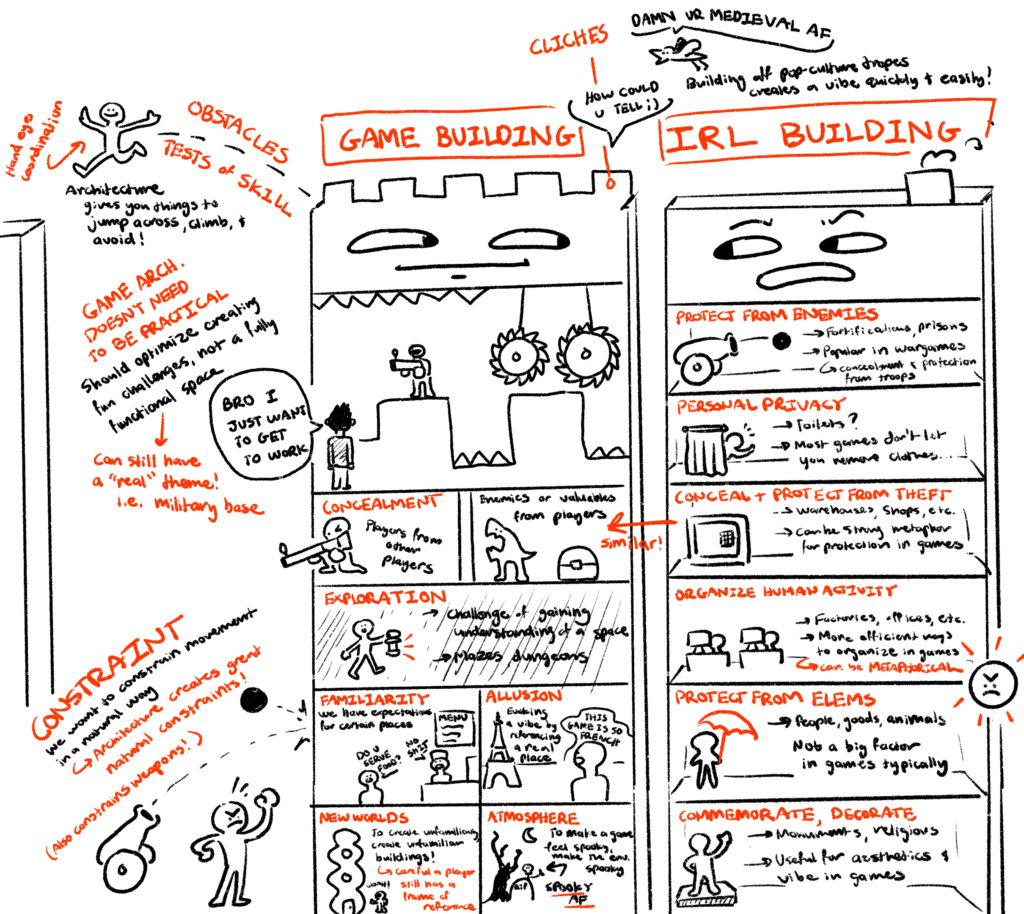 DAMN UR MEDIEVAL AF
CLICHES
Building off pop-culture tropes
creates a vibe quickly & easily!
HOW COULD
U TELL ;)
Hand eye
coordination
OBSTACLES
TESTS of SKILL
Architecture
gives you things to
jump across, climb, &
avoid!
GAME ARCH.
DOESN'T NEED
TO BE PRACTICAL
Should optimize creating
fun challenges, not a fully
functional space
Can still have
a "real" theme!
i.e. military base
CONSTRAINT
We want to constrain movement
in a natural way
Architecture creates great
natural constraints!
(Also constrains weapons!)
GAME BUILDING
BRO I
JUST WANT
TO GET
TO WORK
CONCEALMENT
Players from
other
players
Enemies or valuables
from players
similar!
EXPLORATION
Challenge of gaining
understanding of a space
Mazes dungeons
FAMILIARITY
We have expectations
for certain places
MENU
DO U
SERVE
FOOD?
NO
SHIT
ALLUSION
Evoking
a vibe by
referencing
a real
place
THIS
GAME IS SO
FRENCH
NEW WORLDS
To create unfamiliar,
create unfamiliar
buildings!
careful a player
still has a
frame of
reference
WOAH!
ATMOSPHERE
To make a game
feel spooky,
make the env.
spooky
RIP
SPOOKY
AF
IRL BUILDING
PROTECT FROM ENEMIES
Fortifications, prisons
Popular in wargames
concealment & protection
from troops
PERSONAL PRIVACY
Toilets?
Most games don't let
you remove clothes...
CONCEAL + PROTECT FROM THEFT
Warehouses, shops, etc.
Can be strong metaphor
for protection in games
ORGANIZE HUMAN ACTIVITY
Factories, offices, etc.
More efficient ways
to organize in games
can be METAPHORICAL
PROTECT FROM ELEMS
People, goods, animals
Not a big factor
in games typically
COMMEMORATE, DECORATE
Monuments, religious
Useful for aesthetics &
vibe in games